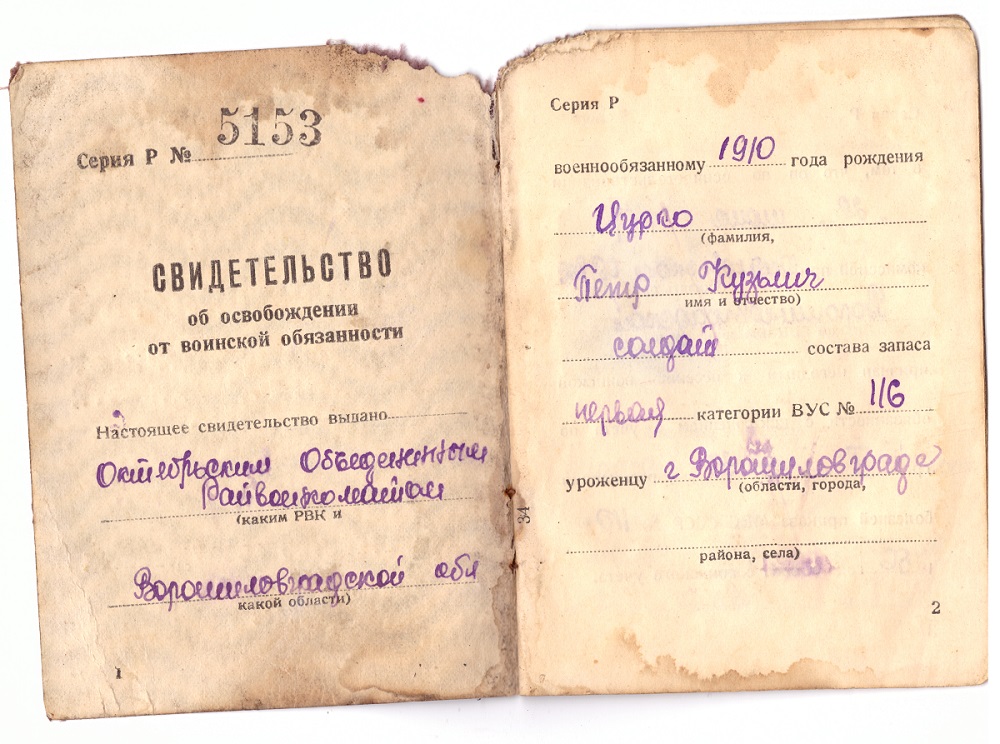 5153
Серия Р №
СВИДЕТЕЛЬСТВО
об освобождении
от воинской обязанности
Настоящее свидетельство выдано
Октябрьским Объединенным
Райвоенкоматом
(каким РВК и
Ворошиловградской обл
какой области)
1
34
Серия Р
военнообязанному 1910 года рождения
Цурко
(фамилия,
Петр Кузьмич
имя и отчество)
солдат состава запаса
первая категории ВУС № 116
уроженцу г Ворошиловграда
(области, города,
района, села)
2